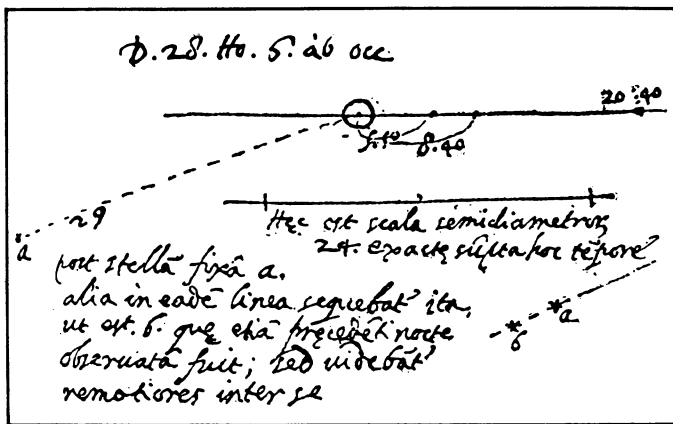 D. 28. Ho. 6. ab occ
20:40
5.10 8.40
29
a
Hęc est scala semidiametroꝝ
24. exactę sũpta hoc tẽpore
post stellã fixã a.
alia in eadẽ linea sequebat' ita,
ut est. b. quę etiã pręcedẽti nocte
obseruatã fuit; sed uidebãt'
remotiores inter se
b a